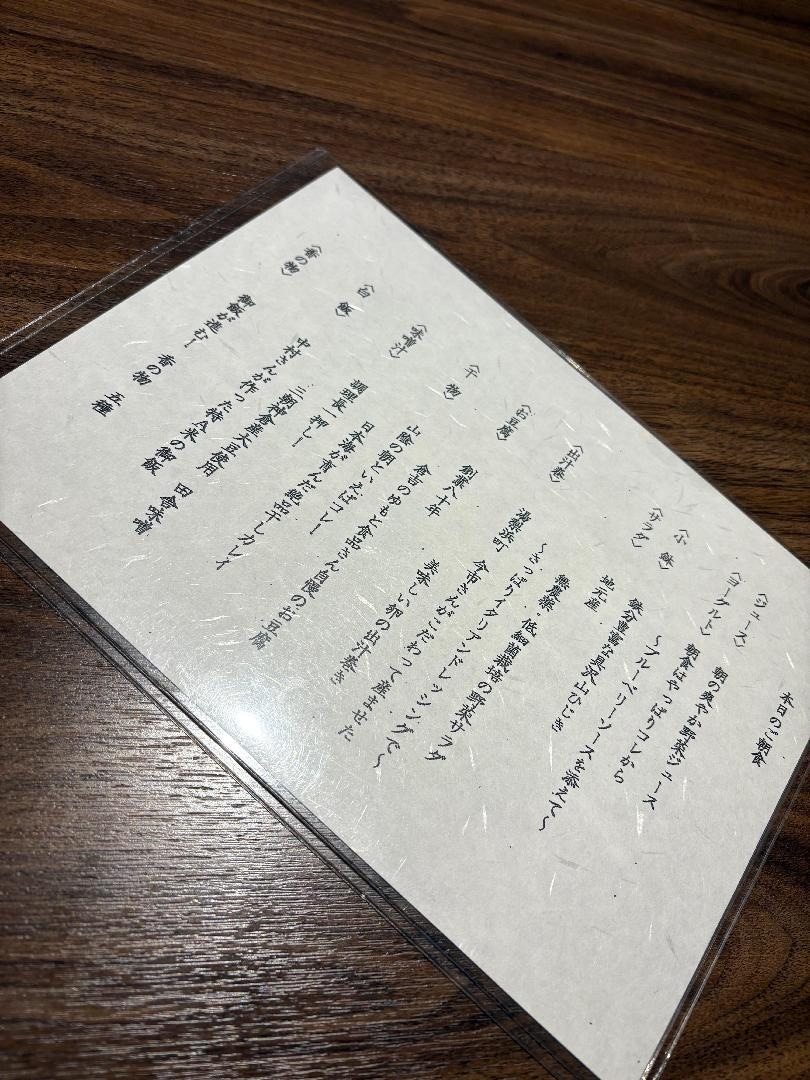 本日のご朝食
〈ジュース〉 朝の爽やか野菜ジュース
〈ヨーグルト〉 朝食はやっぱりコレから
～ブルーベリーソースを添えて～
〈小 鉢〉 鉄分豊富な具沢山ひじき
〈サラダ〉 地元産・無農薬・低細菌栽培の野菜サラダ
～さっぱりイタリアンドレッシングで～
〈出汁巻〉 湯梨浜町・今市さんがこだわって産ませた
美味しい卵の出汁巻き
〈お豆腐〉 創業八十年・倉吉のゆもと食品さん自慢のお豆腐
〈干 物〉 山陰の朝といえばコレ！
日本海が育んだ絶品干しカレイ
〈味噌汁〉 調理長一押し！
三朝神倉産大豆使用 田舎味噌
〈白 飯〉 中村さんが作った特A米の御飯
〈香の物〉 御飯が進む！
香の物 五種